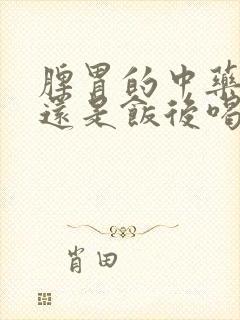 脾胃的中藥
還是飯後喝
肖田